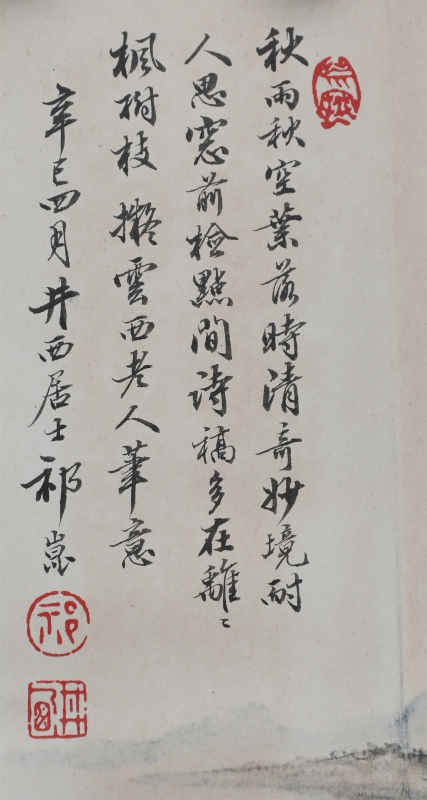 秋雨秋空葉落時清奇妙境耐
人思窓前檢點間詩稿多在離〻
楓樹枝擬雲西老人筆意
辛巳四月井西居士祁崑
祁